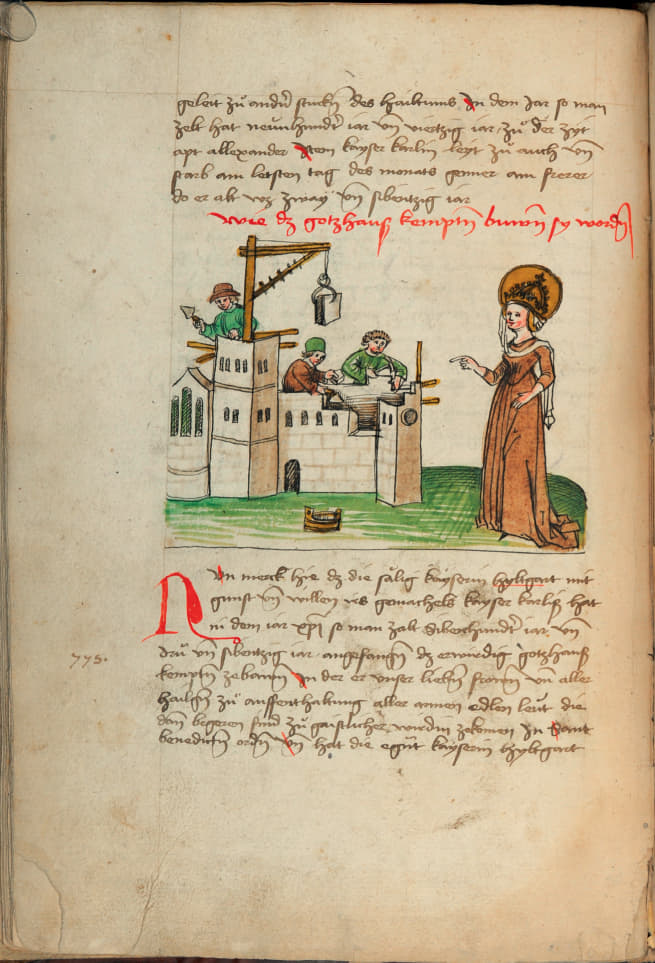 geleit zů andn̄ stuckn̄ des hailtums In dem Jar so man
zelt hat neunhundn̄t iar vn̄ viertzig iar, zů der zyt
apt allexander Item kayser karlin leyt zů auch vn̄
starb am letsten tag des monatz genner am
do er alt wz zway vn̄ sibentzig iar
wie dz gotzhauß kemptn̄ buwn̄ sy wordn̄
Nun merck hie dz die sälig kayserin hyltgart mit
gunst vn̄ willen irs gemachels kayser karliß hat
in dem iar xp̄i so man zalt sibenhundn̄t iar, vn̄
dru vn̄ sibentzig iar angefangn̄ dz erwirdig gotzhauß
775.
kemptn̄ zebawn̄ In der er vnser liebn̄ frowen vn̄ aller
hailgn̄ zů auffenthaltung aller armen edlen leut die
dan̄ begeren sind zů gaistlicher wirdin zekomen In Sant
benedictn̄ ordn̄ Vn̄ hat die kayserin hyltgart